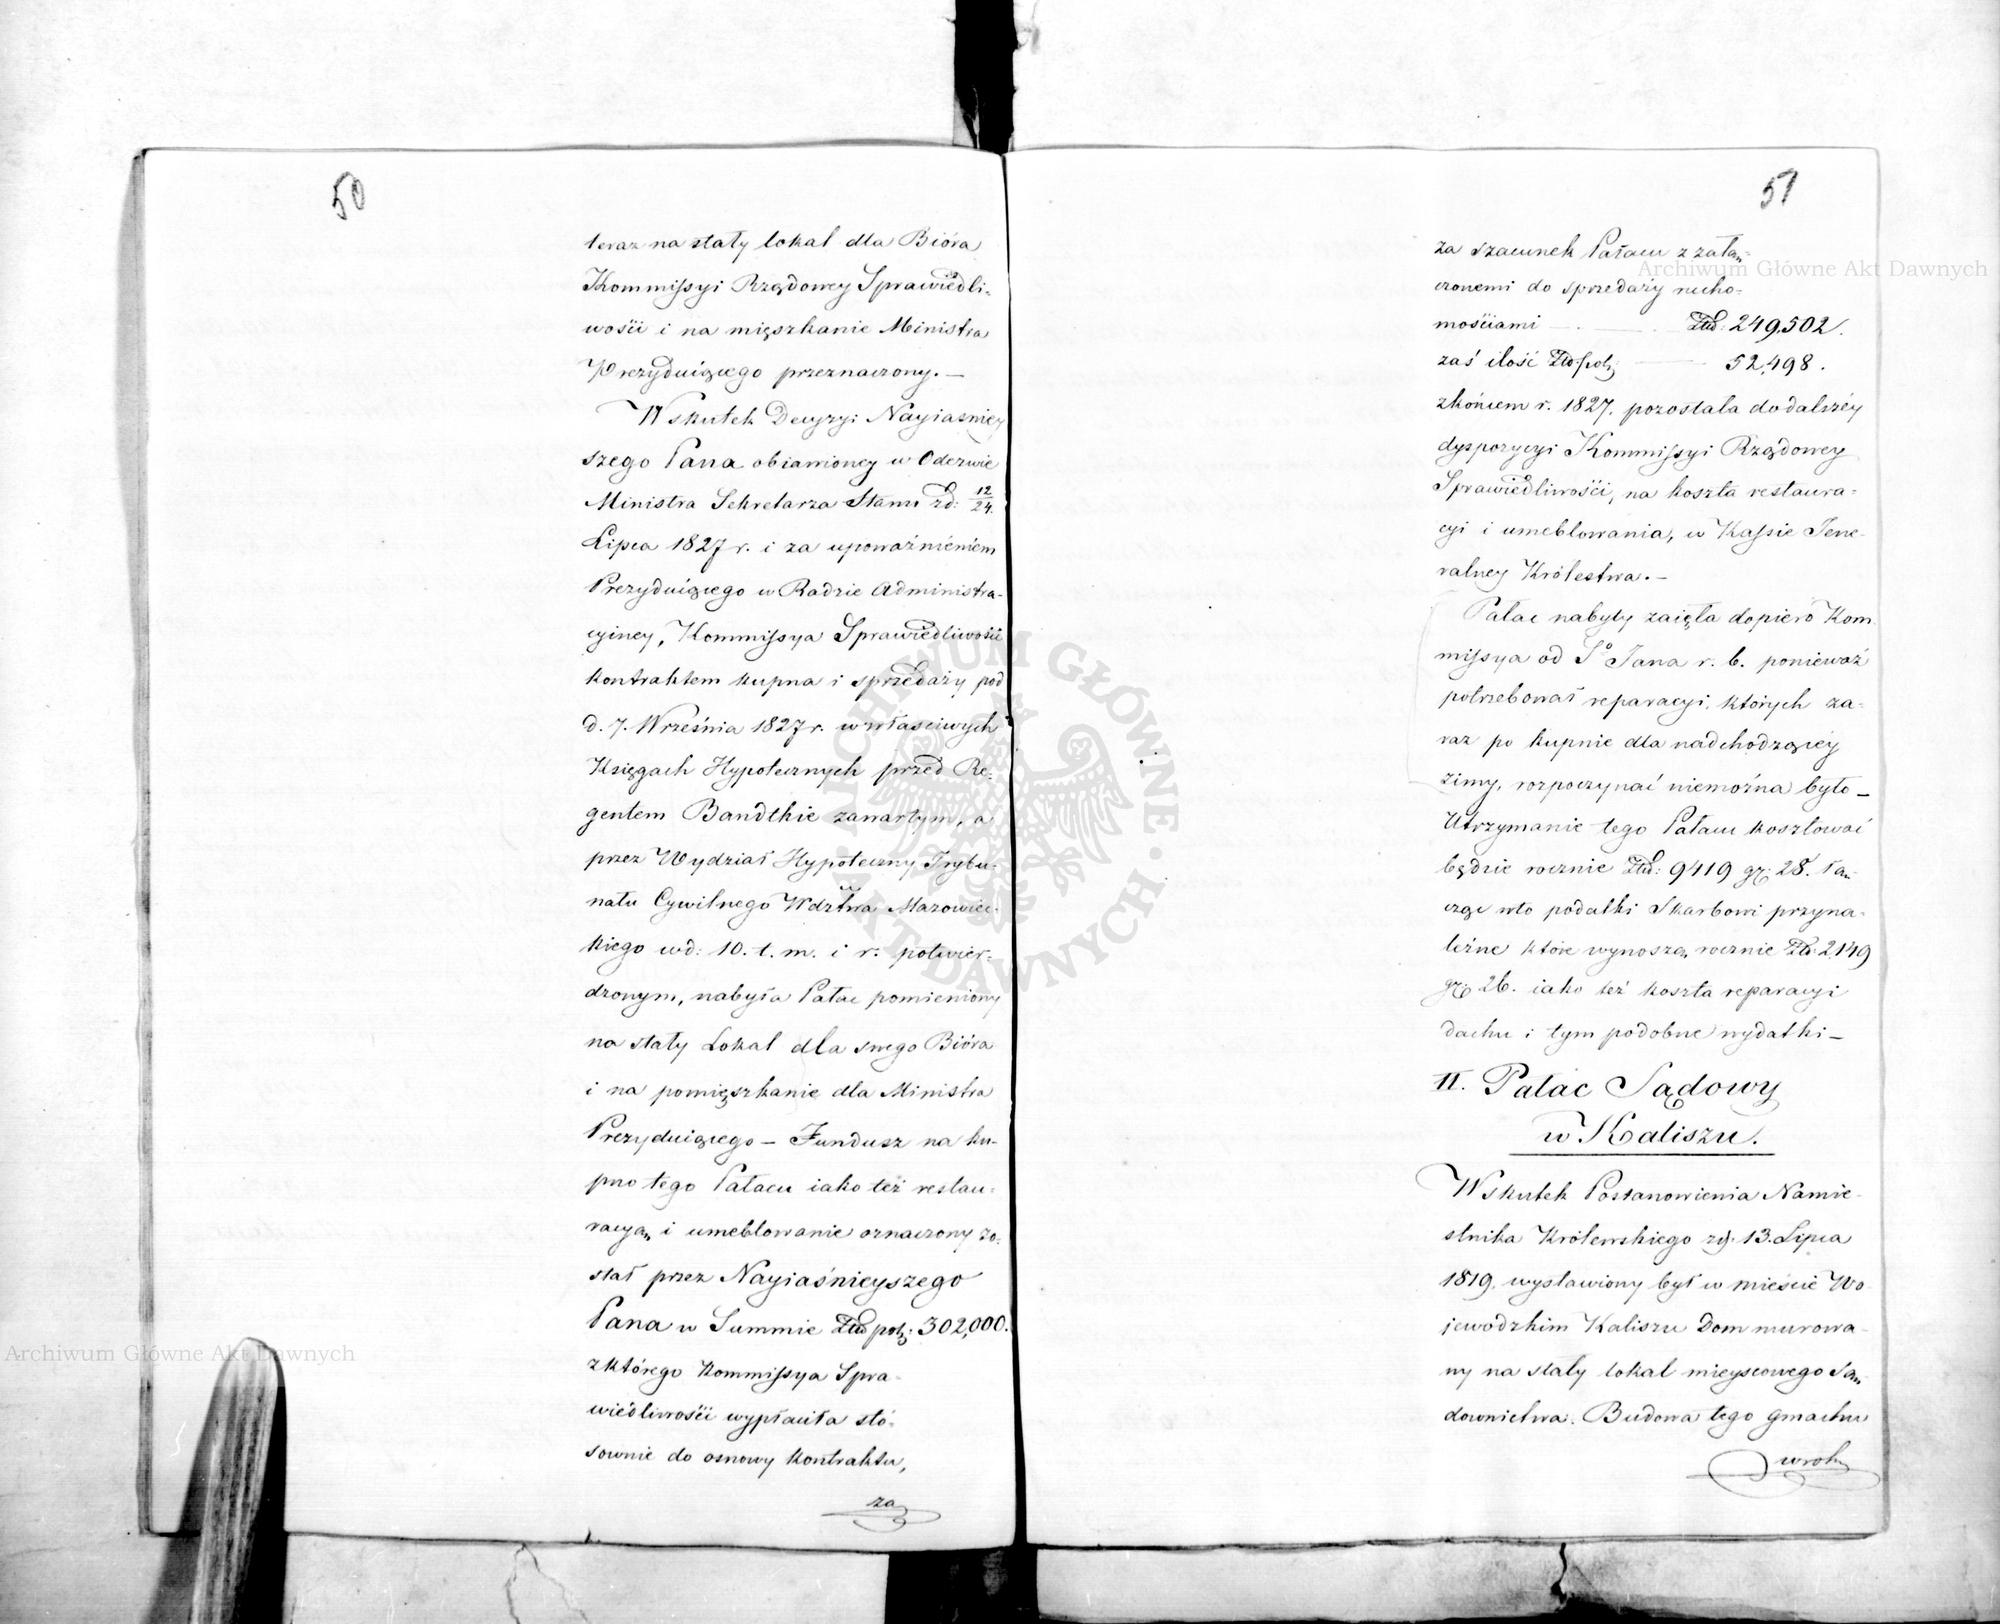 50
teraz na stały lokal dla Bióra
Kommissyi Rządowey Sprawiedli-
wości i na mięszkanie Ministra
Prezyduiącego przeznaczony. —
Wskutek Decyzyi Nayiaśniey
szego Pana obiawioney w Odezwie
Ministra Sekretarza Stanu zd: 12/24.
Lipca 1827 r. i za upoważnieniem
Prezyduiącego w Radzie Administra-
cyiney, Kommissya Sprawiedliwości
kontraktem kupna i sprzedaży pod
d. 7. Września 1827 r. w właściwych
Księgach Hypotecznych przed Re-
gentem Bandtkie zawartym, a
przez Wydział Hypoteczny Trybu-
nału Cywilnego Wdztwa Mazowiec-
kiego w d: 10. t. m. i r. potwier-
dzonym, nabyła Pałac pomieniony
na stały Lokal dla swego Bióra
i na pomięszkanie dla Ministra
Prezyduiącego — Fundusz na ku-
pno tego Pałacu iako też restau-
racyą i umeblowanie oznaczony zo-
stał przez Nayiaśnieyszego
Pana w Summie Złd pol: 302,000.
z którego Kommissya Spra-
wiedliwości wypłaciła stó-
sownie do osnowy kontraktu,
za
51
za szacunek Pałacu z załą-
czonemi do sprzedaży rucho-
mościami — Złd: 249,502.
zaś ilość Złd pol: — 52,498.
z końcem r. 1827. pozostała do dalszéy
dyspozycyi Kommissyi Rządowey
Sprawiedliwości, na koszta restaura-
cyi i umeblowania, w Kassie Jene-
ralney Królestwa. —
Pałac nabyty zaięła dopiero Kom
missya od So Jana r. b. ponieważ
potrzebował reparacyi, których za-
raz po kupnie dla nadchodzącéy
zimy, rozpoczynać niemożna było —
Utrzymanie tego Pałacu kosztować
będzie rocznie Złd: 9419 gr: 28. łą-
cząc w to podatki Skarbowi przyna-
leżne które wynoszą rocznie Złd: 2,149
gr: 26. iako też koszta reparacyi
dachu i tym podobne wydatki —
II. Pałac Sądowy
w Kaliszu.
Wskutek Postanowienia Namie-
stnika Królewskiego zd. 13. Lipca
1819. wystawiony był w mieście Wo-
jewódzkim Kaliszu Dom murowa-
ny na stały lokal mieyscowego Są-
downictwa. Budowa tego gmachu
w roku
Archiwum Główne Akt Dawnych
Archiwum Główne Akt Dawnych
ARCHIWUM GŁÓWNE · AKT DAWNYCH ·